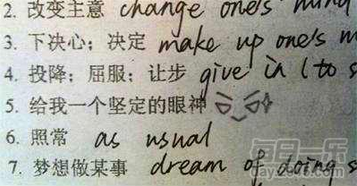 2. 改变主意 change one's mind
3. 下决心；决定 make up one's m
4. 投降；屈服；让步 give in (to s
5. 给我一个坚定的眼神
6. 照常 as usual
7. 梦想做某事 dream of doing s
每日一乐